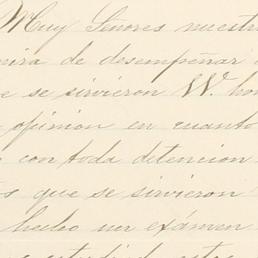 Muy Señores nuestr
mira de desempeñar
e se sirvieron W. ho
opinion en cuanto
con toda detencion
os que se sirvieron
hecho un exámen